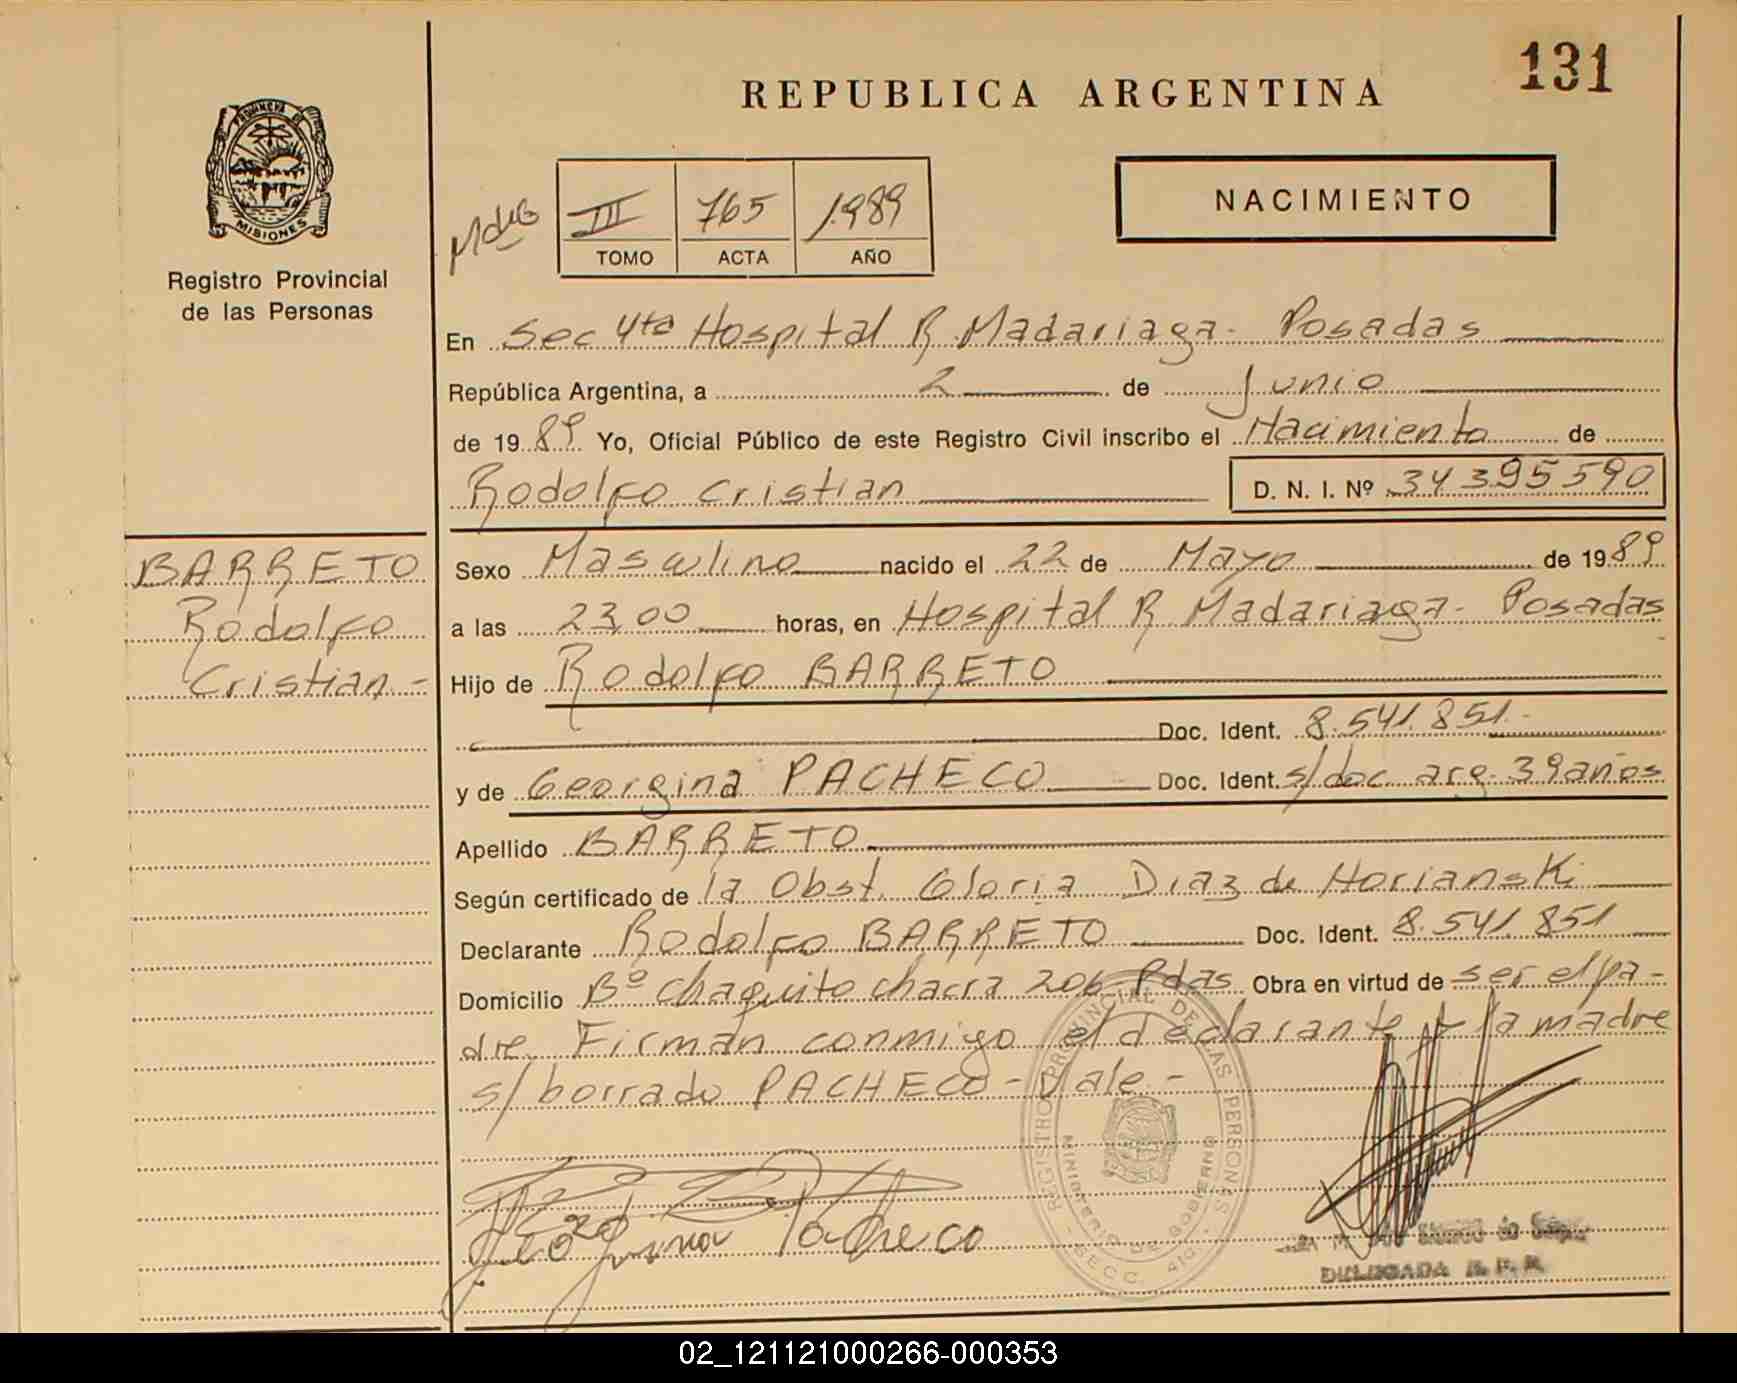 131
REPUBLICA ARGENTINA
PROVINCIA DE
MISIONES
Registro Provincial
de las Personas
III 765 1.989
TOMO ACTA AÑO
NACIMIENTO
En Sec 4ta Hospital R. Madariaga - Posadas
República Argentina, a 2 de Junio
de 19 89 Yo, Oficial Público de este Registro Civil inscribo el Nacimiento de
Rodolfo Cristian D. N. I. Nº 34395590
BARRETO
Rodolfo
Cristian -
Sexo Masculino nacido el 22 de Mayo de 19 89
a las 23,00 horas, en Hospital R. Madariaga - Posadas
Hijo de Rodolfo BARRETO
Doc. Ident. 8.541.851.-
y de Georgina PACHECO Doc. Ident. s/doc arg. 39 años
Apellido BARRETO
Según certificado de la Obst. Gloria Diaz de Horianski
Declarante Rodolfo BARRETO Doc. Ident. 8.541.851
Domicilio Bº Chaquito chacra 206 Pdas Obra en virtud de ser el pa-
dre. Firman conmigo el declarante y la madre
s/borrado PACHECO - Vale -
REGISTRO PROVINCIAL DE LAS PERSONAS
MINISTERIO DE GOBIERNO
SECC. 4ta.
Georgina Pacheco
DELEGADA R. P. P.
02_121121000266-000353